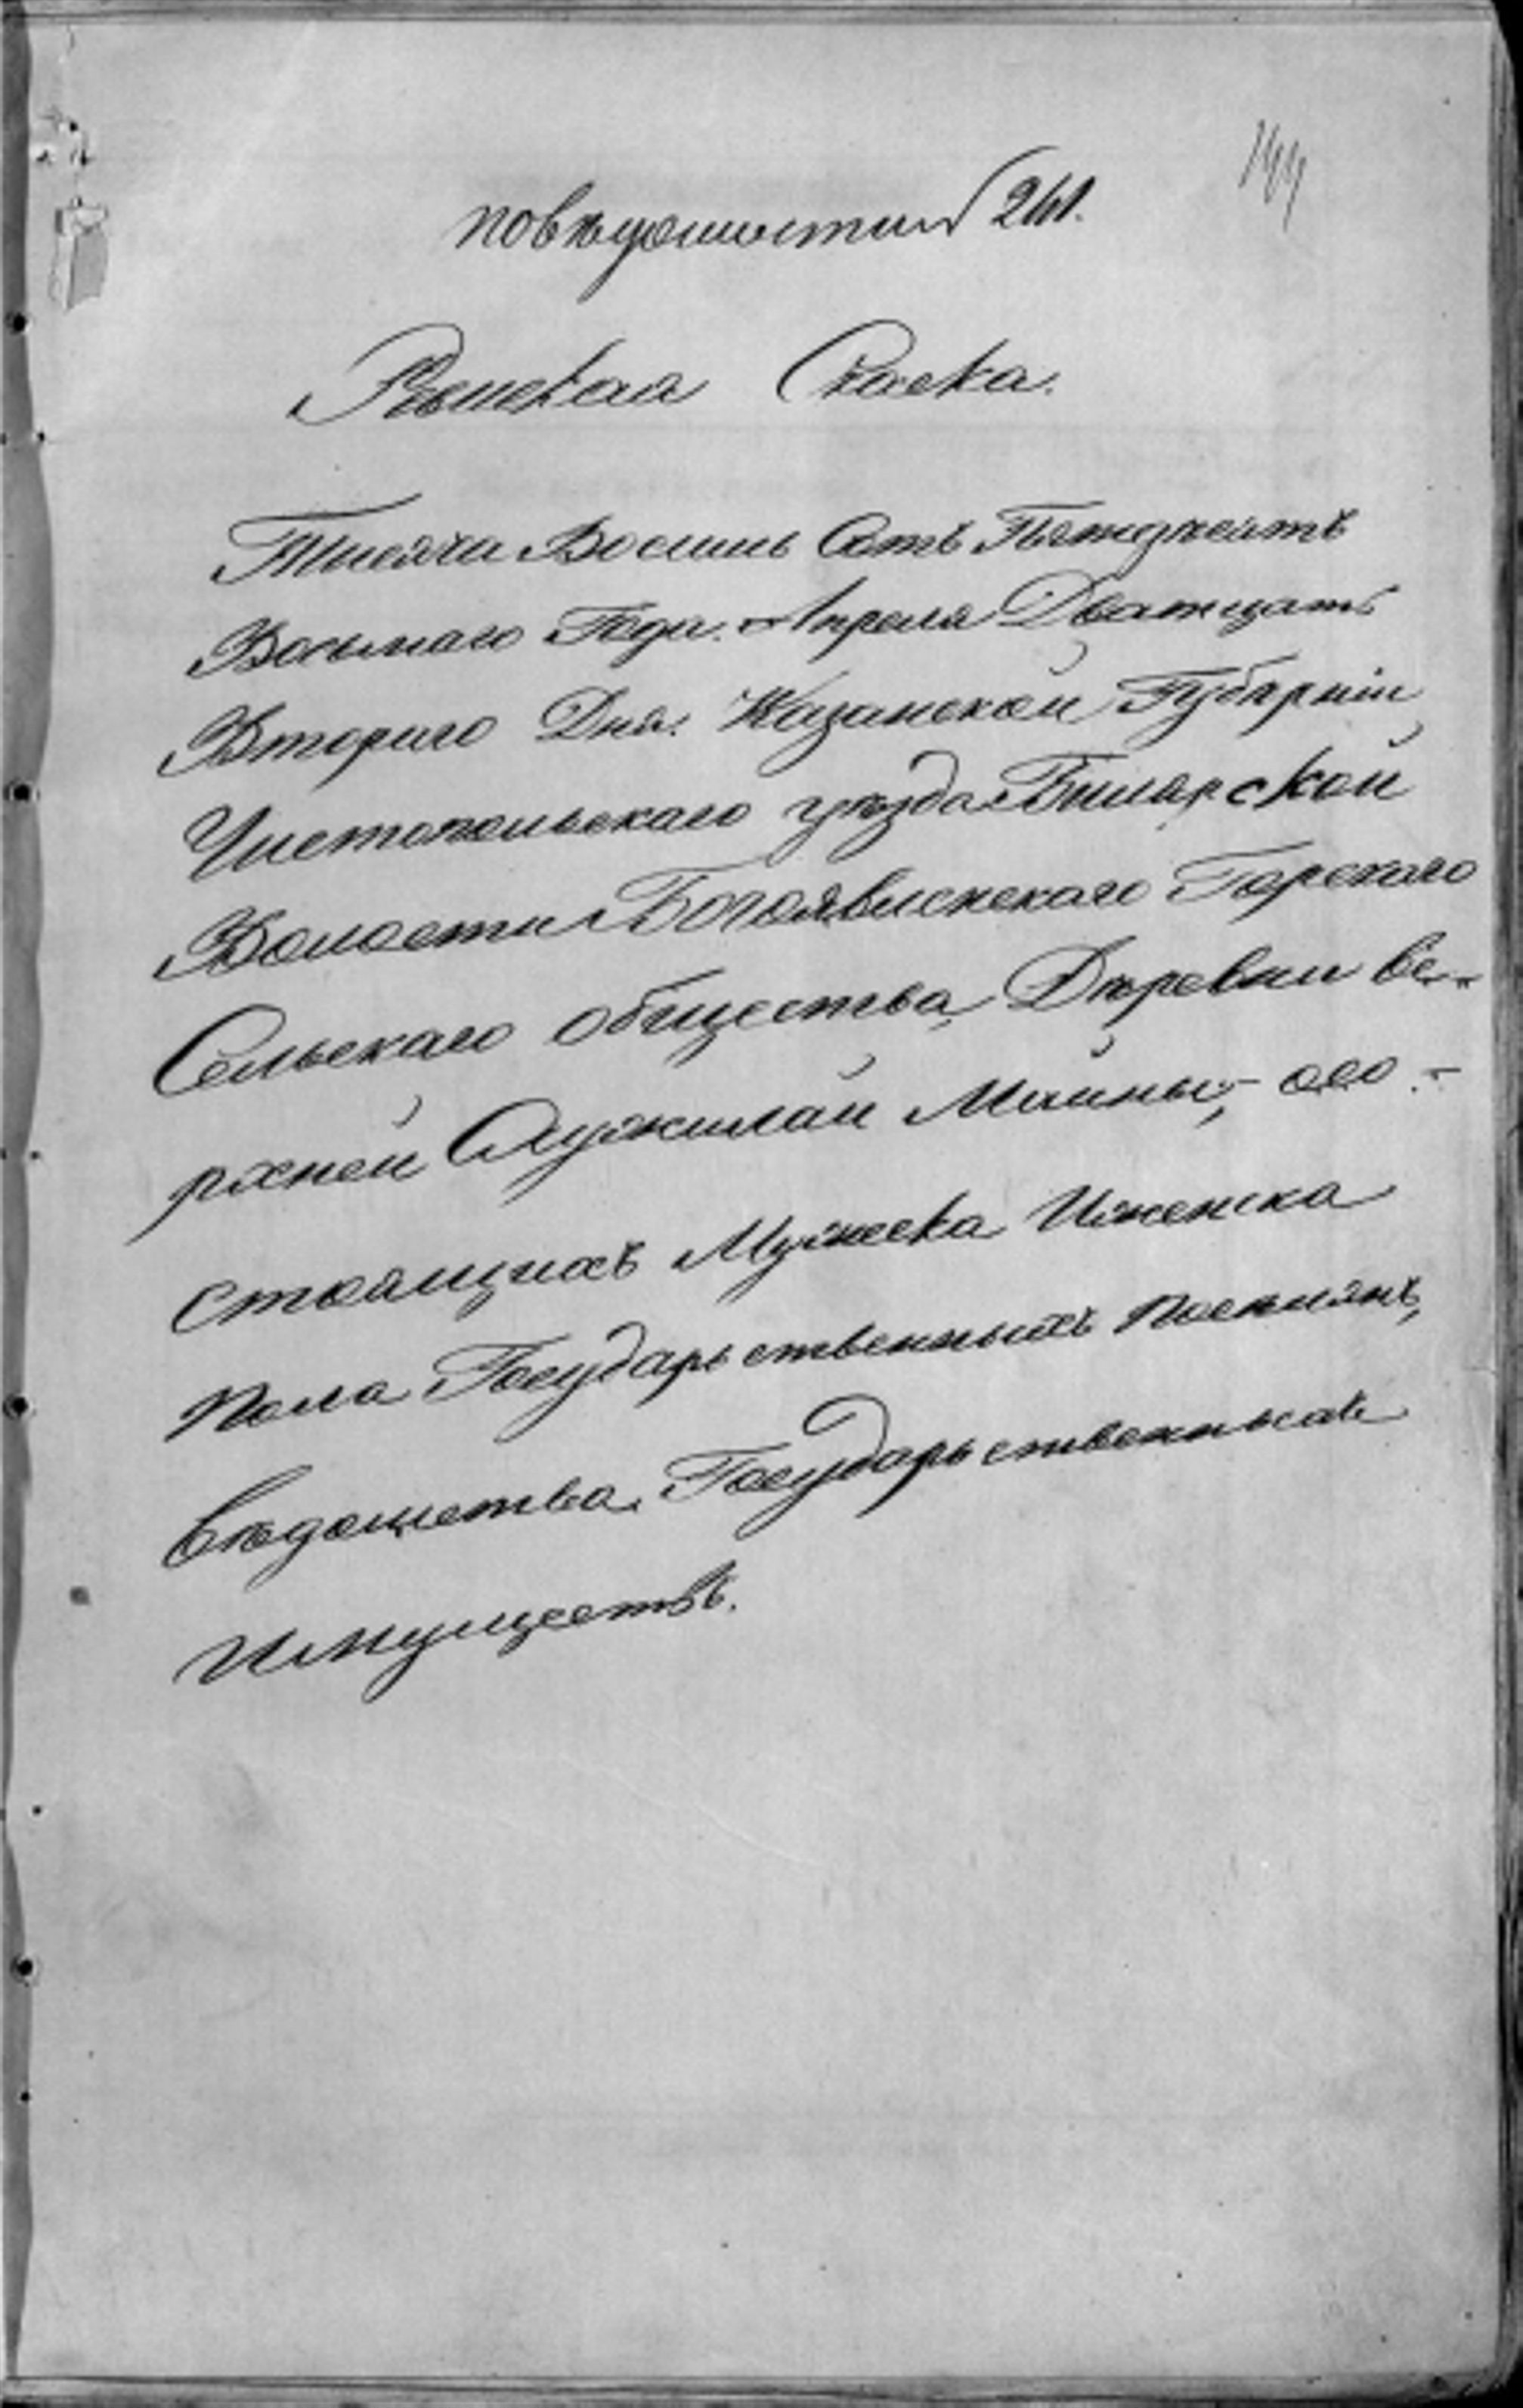 144
по вѣдомости 261.
Ревиская Скаска.
Тисяча Восимь Сотъ Пятдесятъ
Восьмаго Года. Апреля Дватцать
Втораго Дня. Казанской Губерніи
Чистопольскаго уѣзда Билярской
Волости Богоявленскаго Горскаго
Сельскаго общества, Деревни ве-
рхней Служилай Майны, - осо -
стоящихъ Мужеска Иженска
пола Государьственныхъ Поселянъ,
вѣдомства Государьственныхъ
Имуществъ.